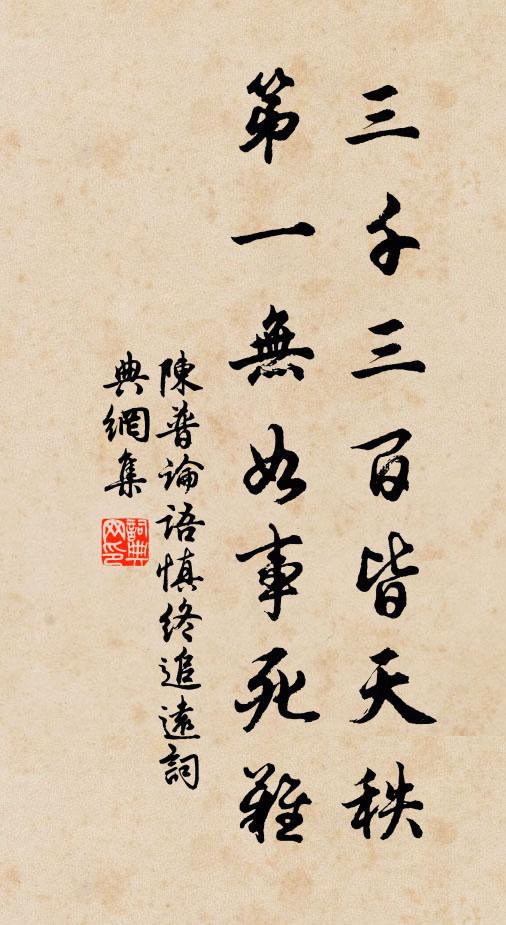 三千三百皆天秩
第一無如事死難
陳普論語慎終追遠詞
典網集
詞典網印